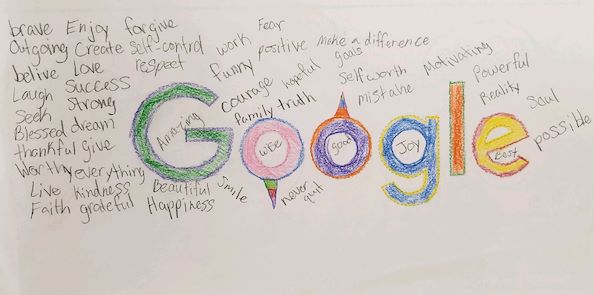 brave Enjoy forgive
Outgoing Create Self-control
belive Love respect
Laugh Success
Seek Strong
Blessed dream
thankful give
Worthy everything
Live kindness Beautiful Smile
Faith grateful Happiness
work Fear
funny positive make a difference
goals
courage hopeful Selfworth Motivating
Family truth mistake Powerful
Reality Soul
possible
Google
Amazing
wise
good
Joy
Best
never
quit